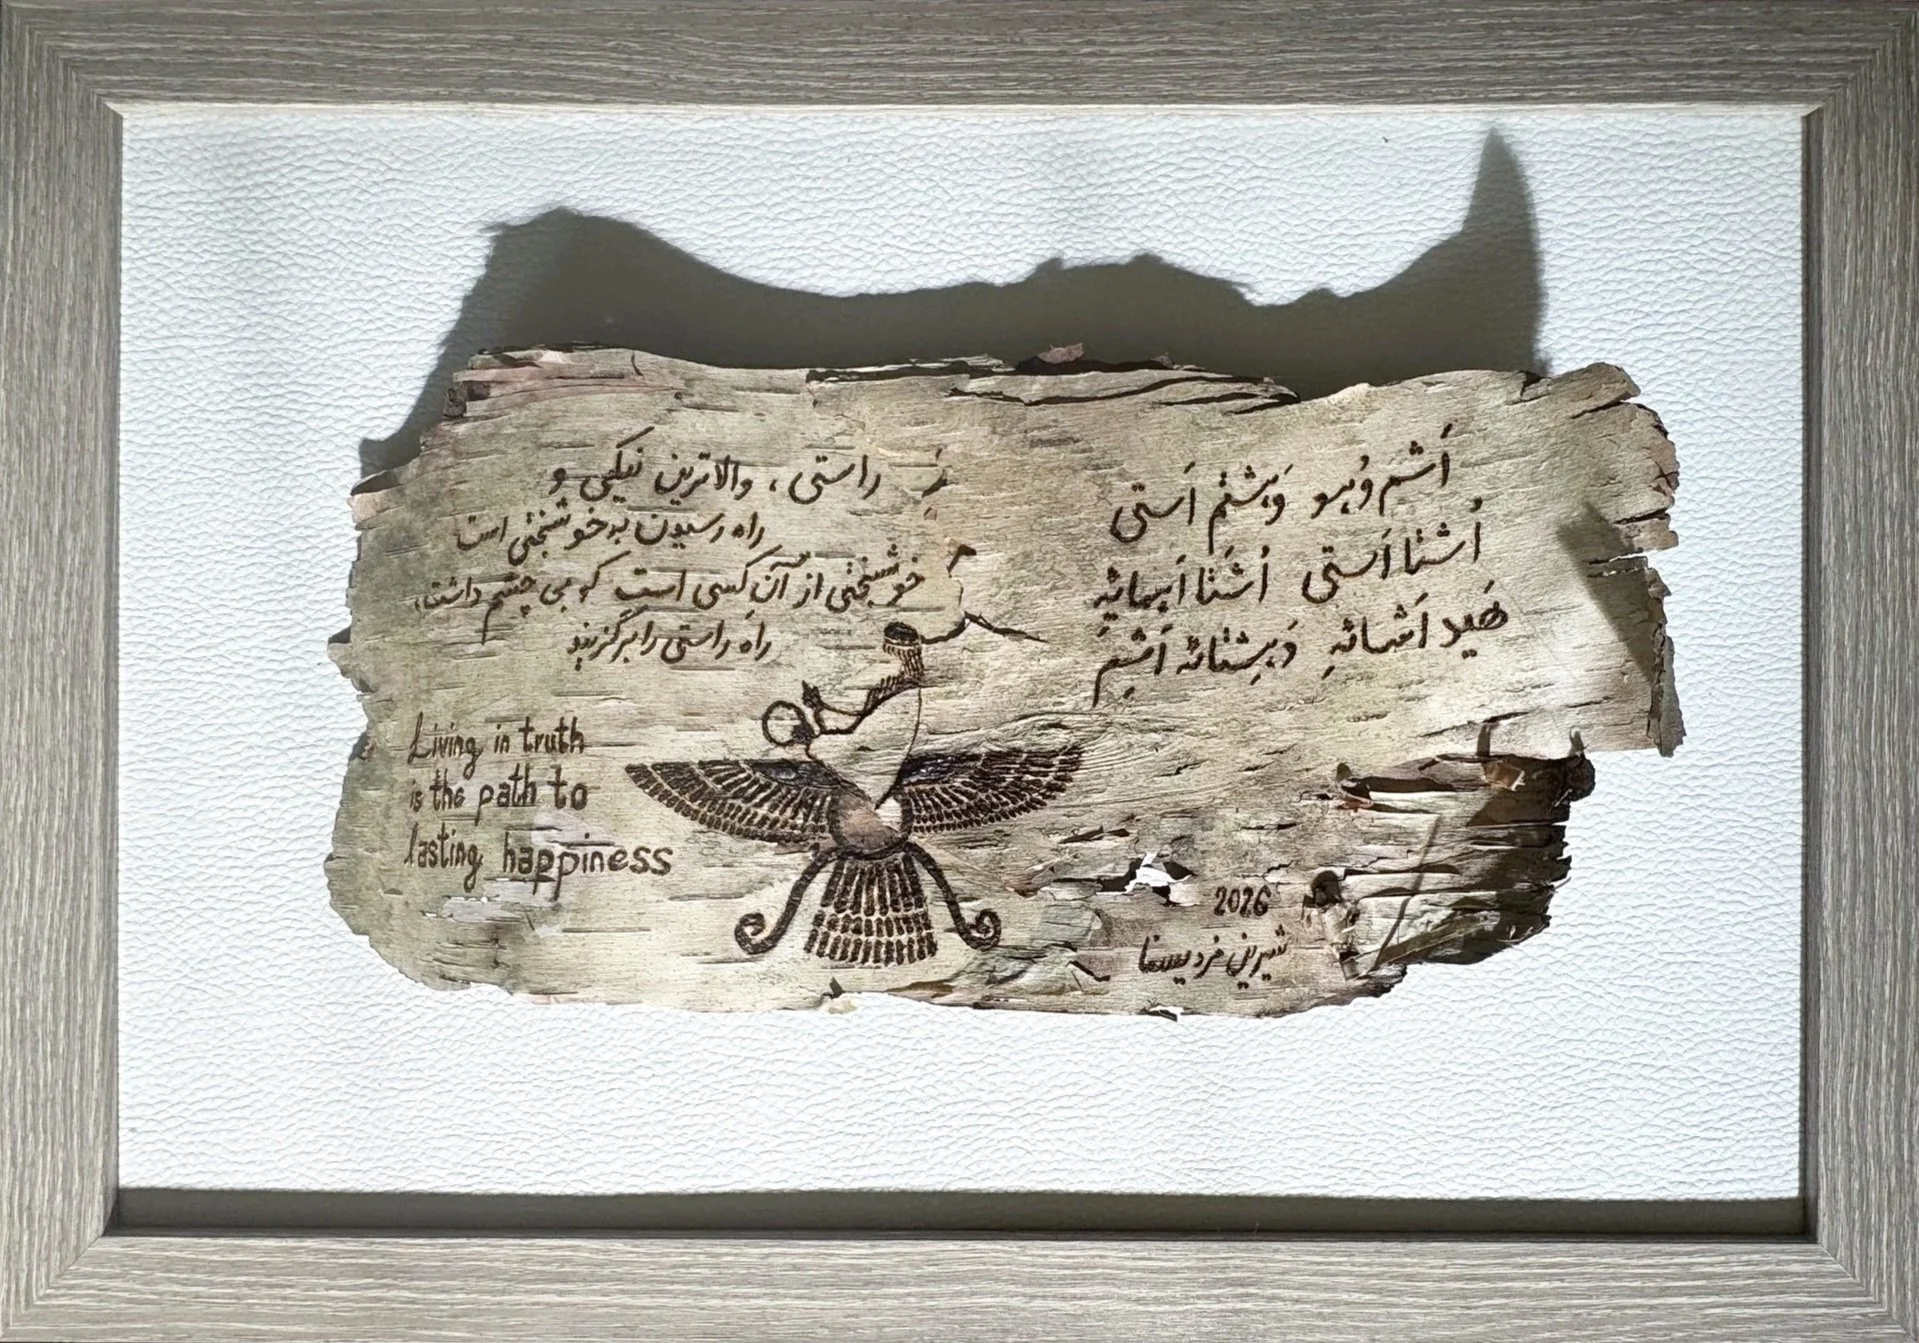 اَشَم وُهو وَهِشتَم اَستی
اُشتا اَستی اُشتا اَهمائِه
هَید اَشائه وَهیشتائه اَشِم
راستی، والاترین نیکی و
راه رسیدن به خوشبختی است
خوشبختی از آنِ کسی است که بی چشم داشت،
راه راستی را برگزیند
Living in truth
is the path to
lasting happiness
2026
شیرین مزدیسنا